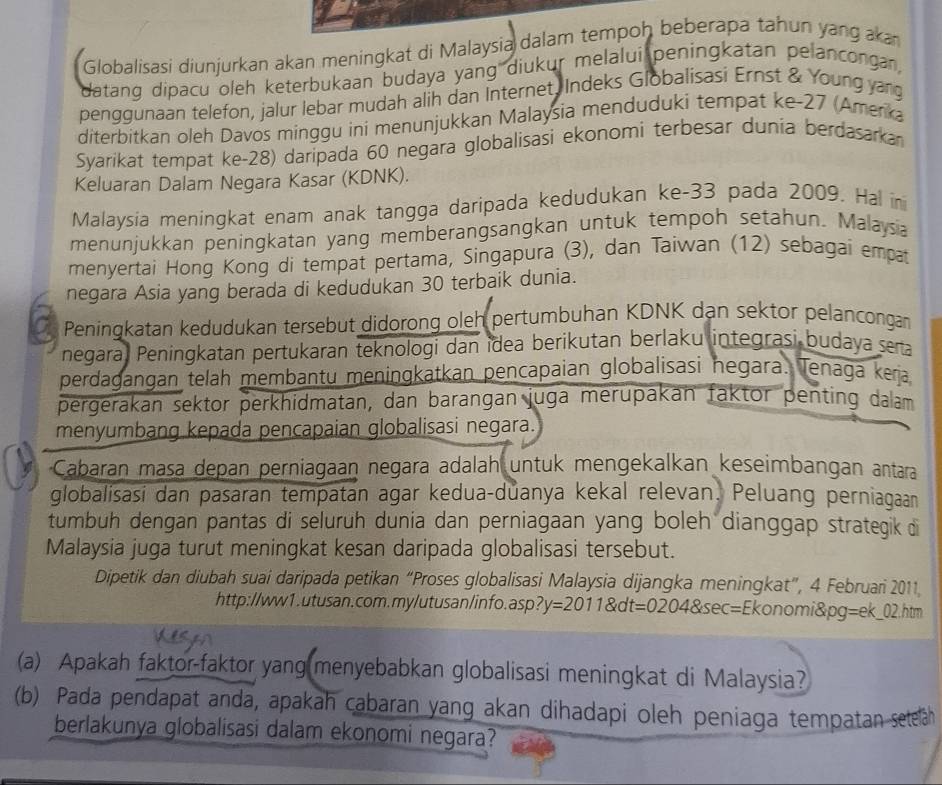 Globalisasi diunjurkan akan meningkat di Malaysia dalam tempoh beberapa tahun yang akan
datang dipacu oleh keterbukaan budaya yang diukur melalui peningkatan pelancongan,
penggunaan telefon, jalur lebar mudah alih dan Internet. Indeks Globalisasi Ernst & Young yang
diterbitkan oleh Davos minggu ini menunjukkan Malaysia menduduki tempat ke-27 (Amerika
Syarikat tempat ke-28) daripada 60 negara globalisasi ekonomi terbesar dunia berdasarkan
Keluaran Dalam Negara Kasar (KDNK).
Malaysia meningkat enam anak tangga daripada kedudukan ke-33 pada 2009. Hal ini
menunjukkan peningkatan yang memberangsangkan untuk tempoh setahun. Malaysia
menyertai Hong Kong di tempat pertama, Singapura (3), dan Taiwan (12) sebagai empat
negara Asia yang berada di kedudukan 30 terbaik dunia.
Peningkatan kedudukan tersebut didorong oleh pertumbuhan KDNK dan sektor pelancongan
negara. Peningkatan pertukaran teknologi dan idea berikutan berlaku integrasi budaya serta
perdagangan telah membantu meningkatkan pencapaian globalisasi negara. Tenaga kerja,
pergerakan sektor perkhidmatan, dan barangan juga merupakan faktor penting dalam
menyumbang kepada pencapaian globalisasi negara.
Cabaran masa depan perniagaan negara adalah untuk mengekalkan keseimbangan antara
globalisasi dan pasaran tempatan agar kedua-duanya kekal relevan. Peluang perniagaan
tumbuh dengan pantas di seluruh dunia dan perniagaan yang boleh dianggap strategik di
Malaysia juga turut meningkat kesan daripada globalisasi tersebut.
Dipetik dan diubah suai daripada petikan "Proses globalisasi Malaysia dijangka meningkat", 4 Februari 2011,
http://ww1.utusan.com.my/utusan/info.asp?y=2011&dt=0204&sec=Ekonomi&pg=ek_02.htm
kesan
(a) Apakah faktor-faktor yang menyebabkan globalisasi meningkat di Malaysia?
(b) Pada pendapat anda, apakah cabaran yang akan dihadapi oleh peniaga tempatan setelah
berlakunya globalisasi dalam ekonomi negara?